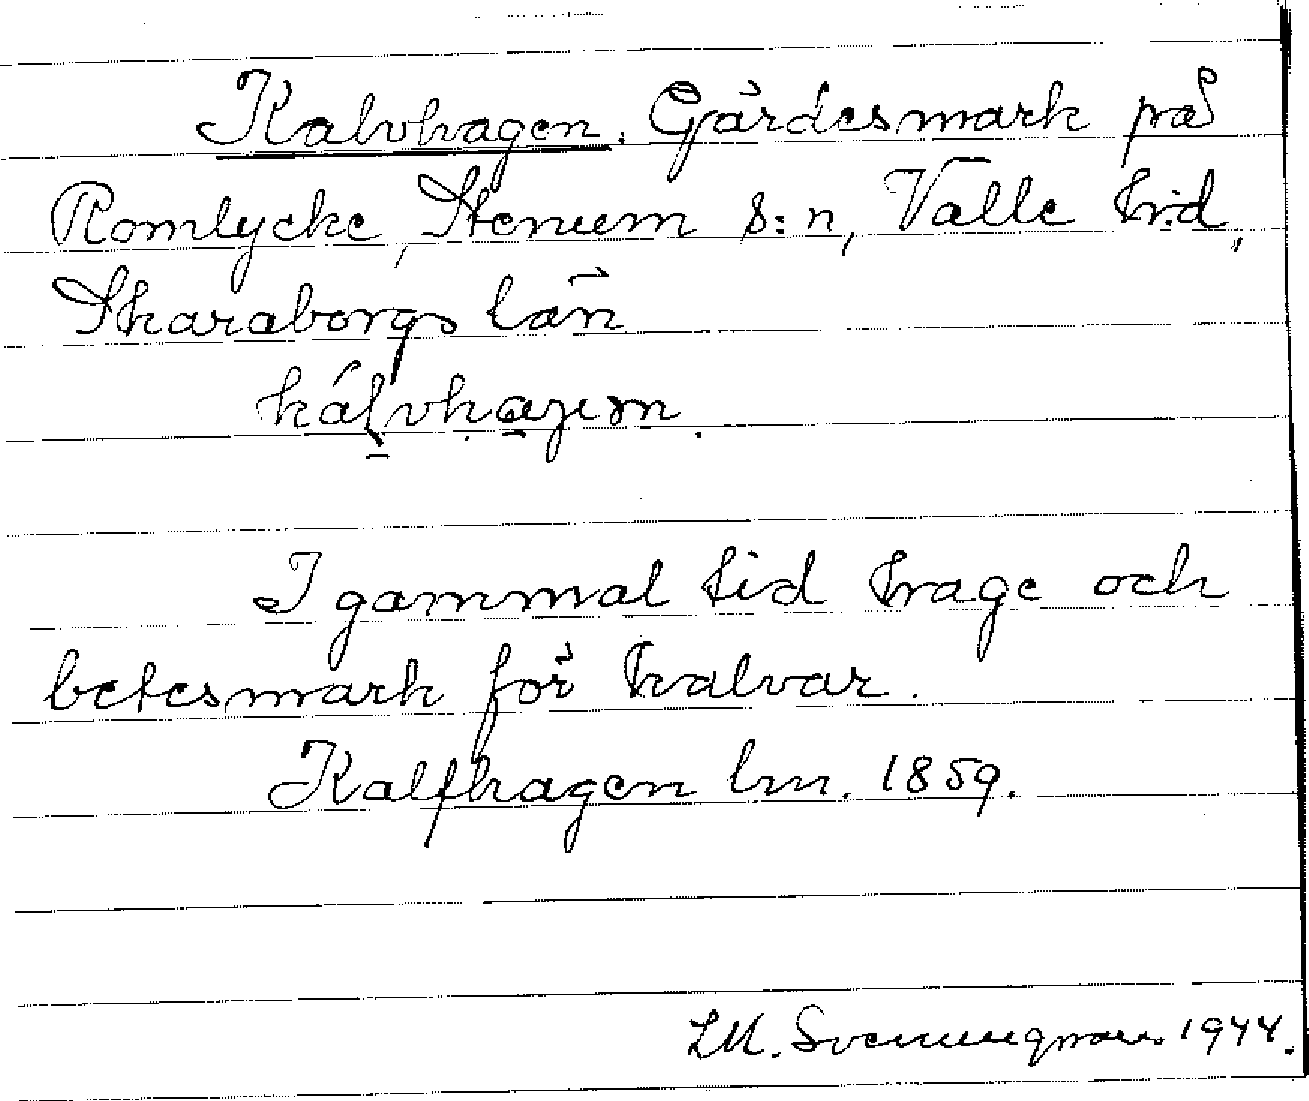 Kalvhagen. Gärdesmark på
Romlycke, Stenum s:n, Valle hd,
Skaraborgs län
kálvhaɡen.
I gammal tid hage och
betesmark för kalvar.
Kalfhagen lm. 1859.
1944.